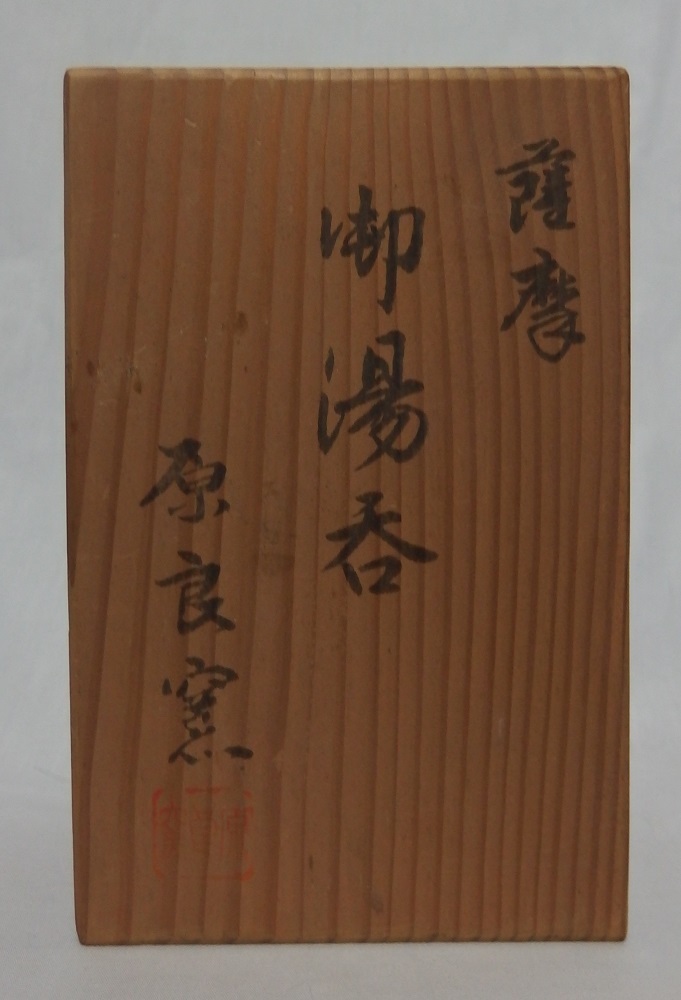 薩摩
御湯呑
原良窯